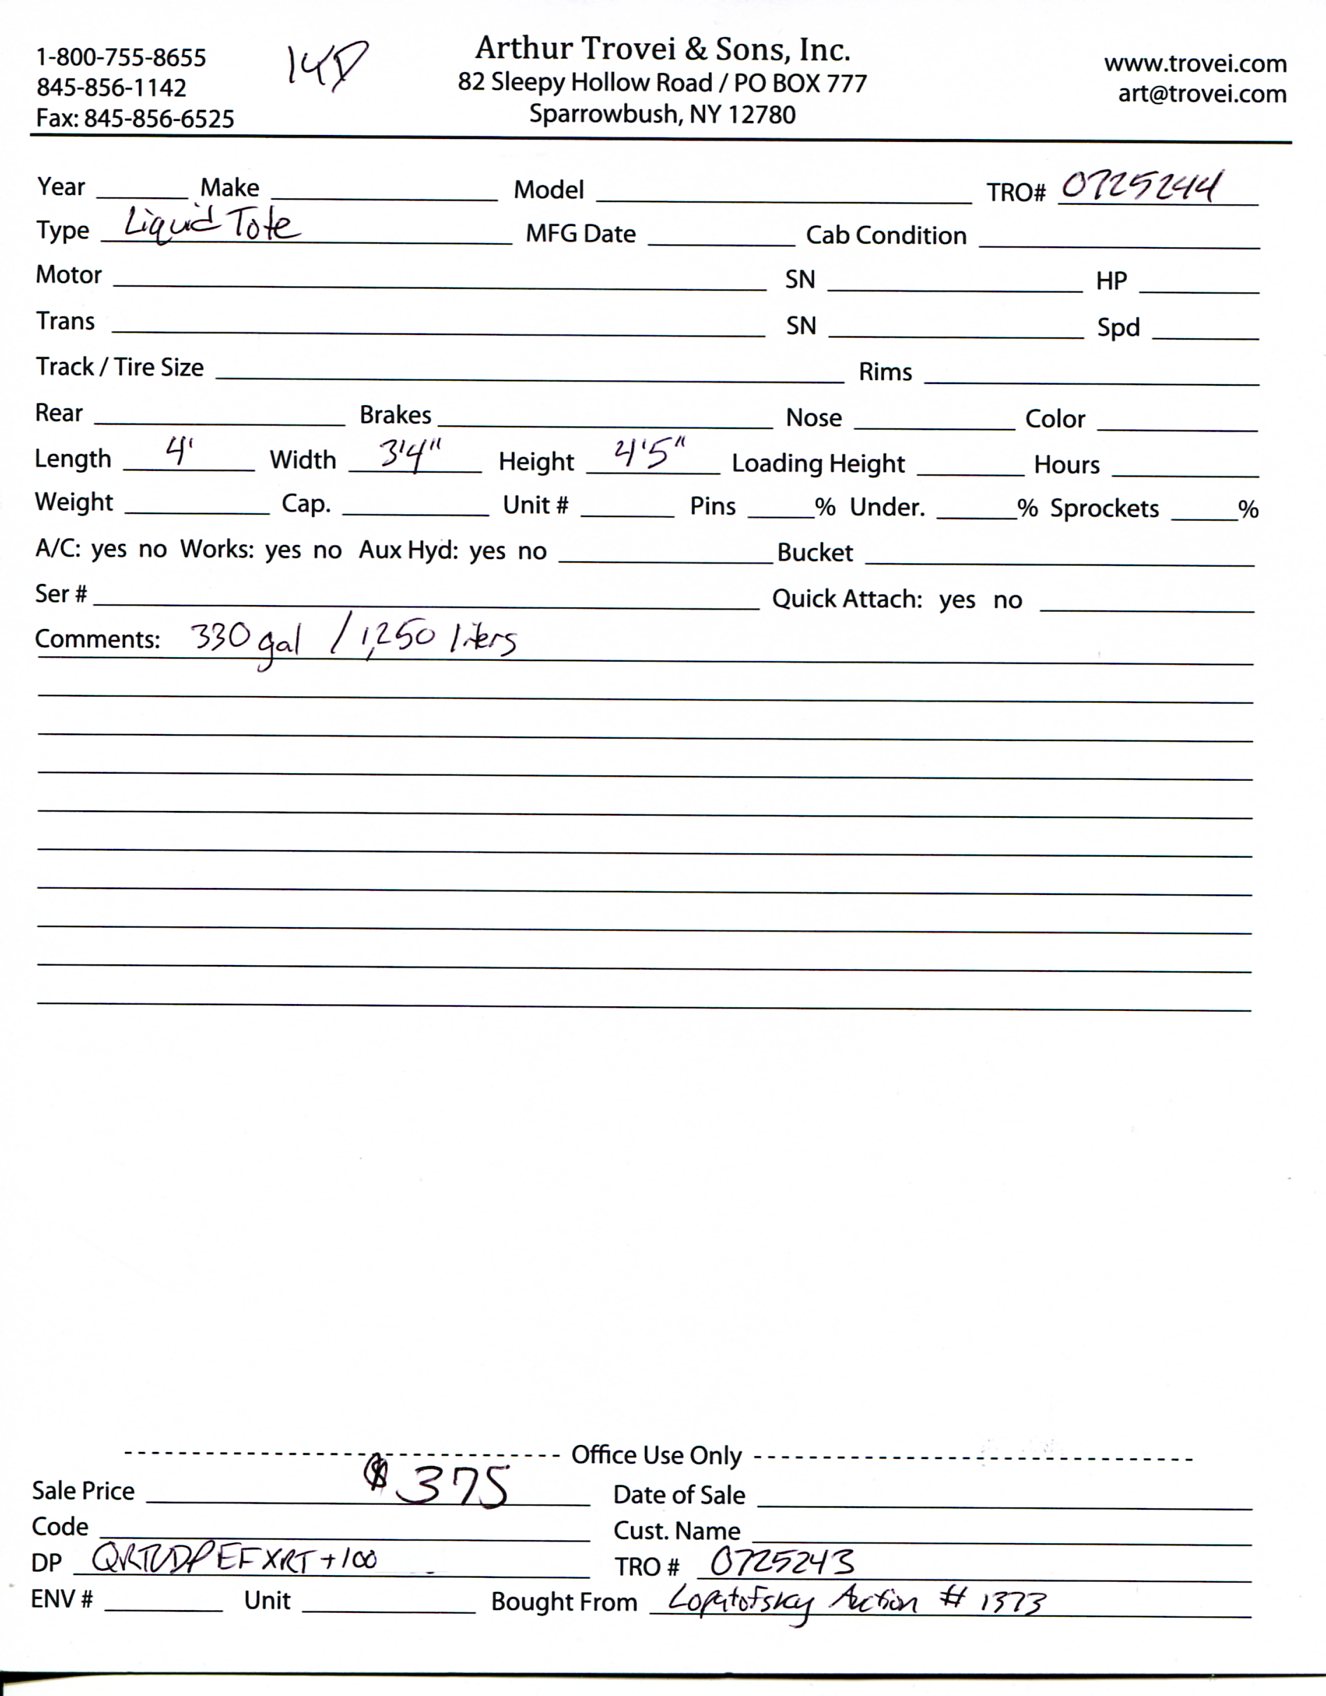 1-800-755-8655
845-856-1142
Fax: 845-856-6525
Arthur Trovei & Sons, Inc.
82 Sleepy Hollow Road / PO BOX 777
Sparrowbush, NY 12780
www.trovei.com
art@trovei.com
Year Make Model TRO# 0725244
Type Liquid Tote MFG Date Cab Condition
Motor SN HP
Trans SN Spd
Track / Tire Size Rims
Rear Brakes Nose Color
Length 4' Width 3'4" Height 4'5" Loading Height Hours
Weight Cap. Unit # Pins % Under. % Sprockets %
A/C: yes no Works: yes no Aux Hyd: yes no Bucket
Ser # Quick Attach: yes no
Comments: 330 gal / 1,250 liters
Office Use Only
Sale Price $375 Date of Sale
Code Cust. Name
DP +100 TRO # 0725243
ENV # Unit Bought From Lopatofsky Auction # 1373